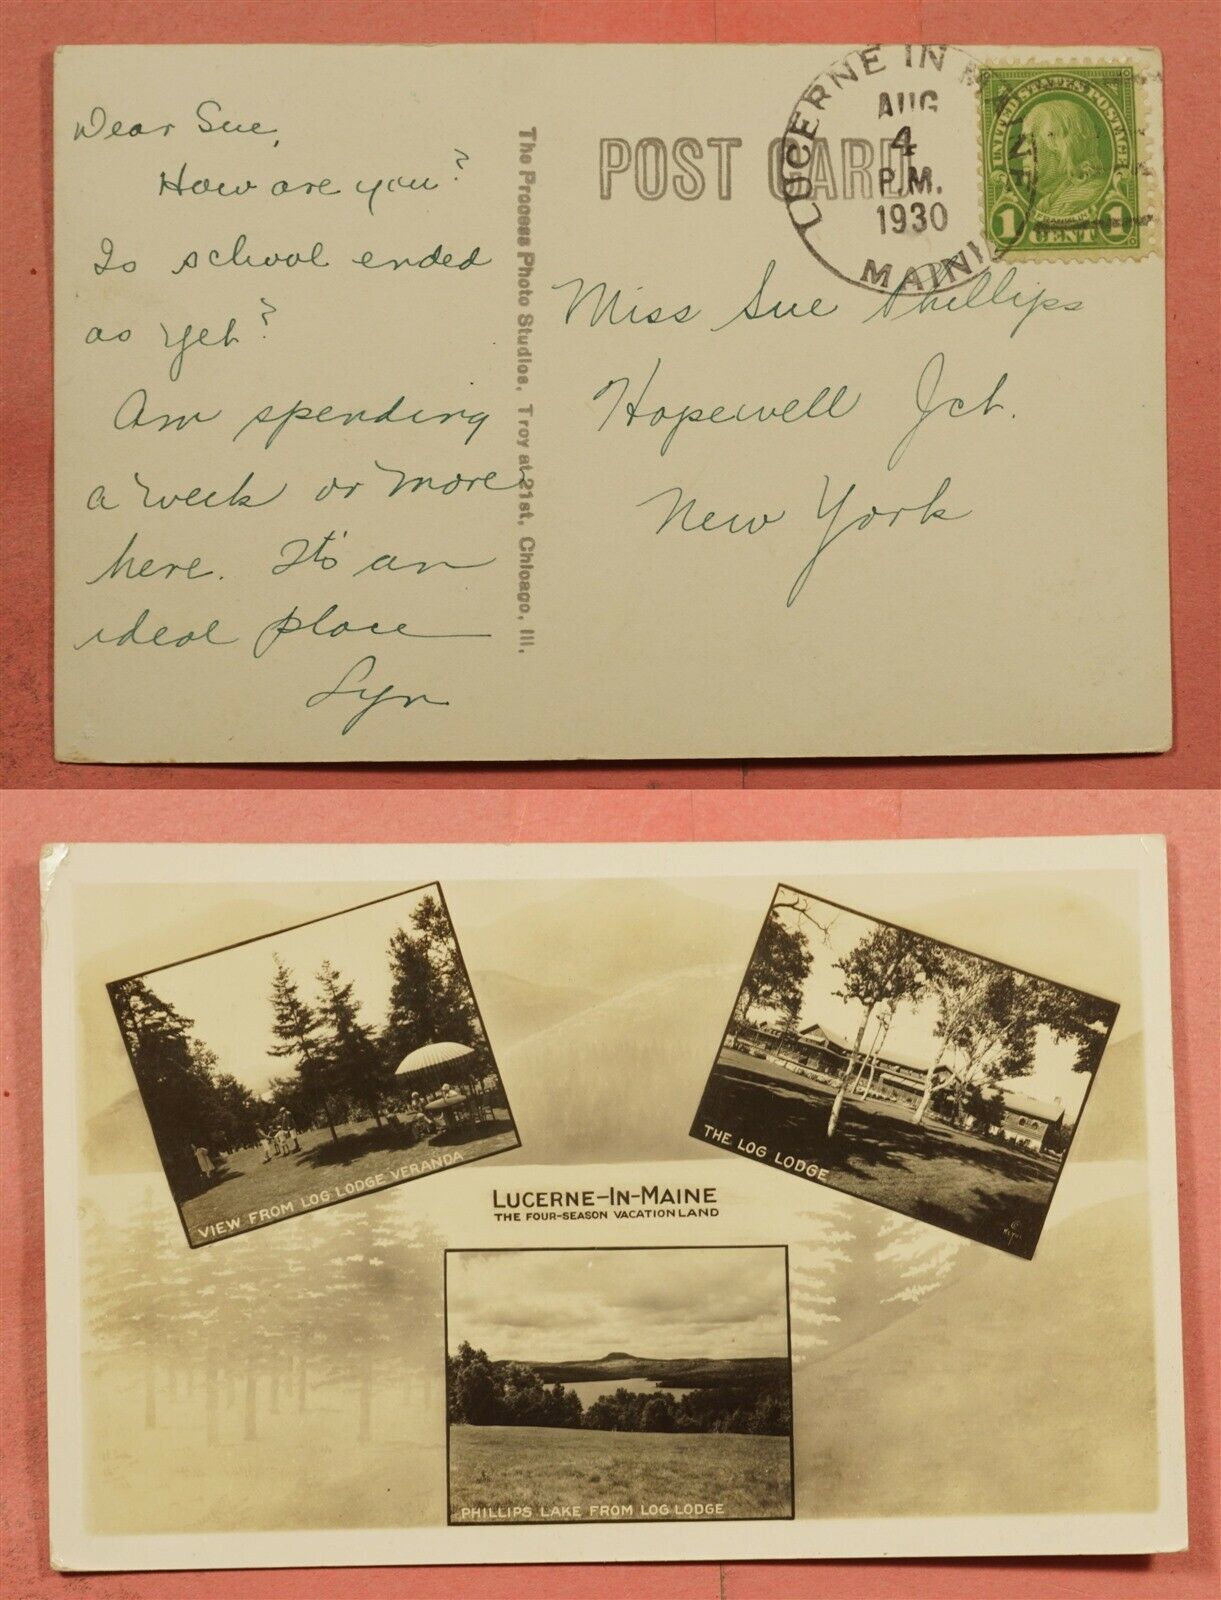 Dear Sue,
How are you?
Is school ended
as yet?
Am spending
a week or more
here. It's an
ideal place
Lyn
The Process Photo Studios, Troy at 21st, Chicago, Ill.
POST CARD
LUCERNE IN MAINE
AUG
4
P.M.
1930
MAINE
UNITED STATES POSTAGE
FRANKLIN
1 CENT 1
Miss Sue Phillips
Hopewell Jct.
New York
VIEW FROM LOG LODGE VERANDA
THE LOG LODGE
LUCERNE-IN-MAINE
THE FOUR-SEASON VACATIONLAND
PHILLIPS LAKE FROM LOG LODGE